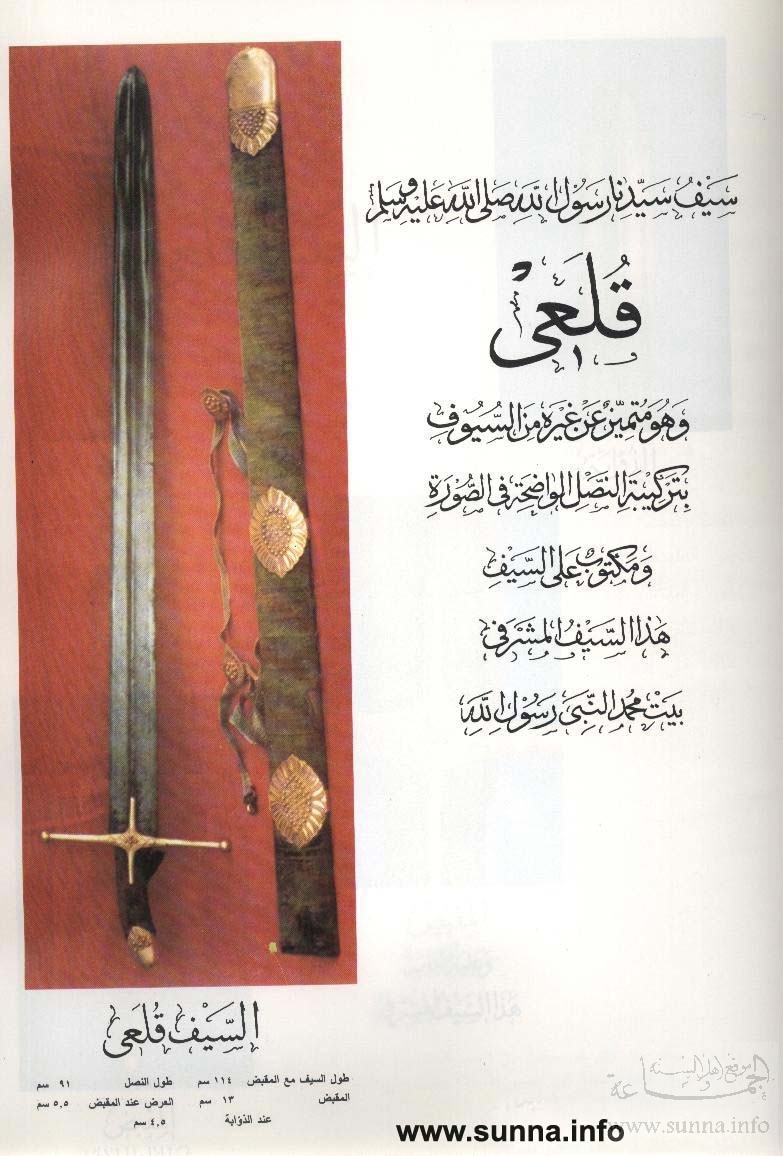 سَيْفُ سَيِّدِنَا رَسُولِ اللهِ صَلَّى اللهُ عَلَيْهِ وَسَلَّمَ
قُلَعِيّ
وَهُوَ مُتَمَيِّزٌ عَنْ غَيْرِهِ مِنَ السُّيُوفِ
بِتَرْكِيبَةِ النَّصْلِ الوَاضِحَةِ فِي الصُّورَةِ
وَمَكْتُوبٌ عَلَى السَّيْفِ
هَذَا السَّيْفُ المَشْرَفِي
بَيْتِ مُحَمَّدٍ النَّبِيِّ رَسُولِ اللهِ
السَّيْفُ قُلَعِي
طول السيف مع المقبض ١١٤ سم طول النصل ٩١ سم
المقبض ١٣ سم العرض عند المقبض ٥,٥ سم
عند الذؤابة ٤,٥ سم
موقع أهل السنة والجماعة
www.sunna.info
www.sunna.info